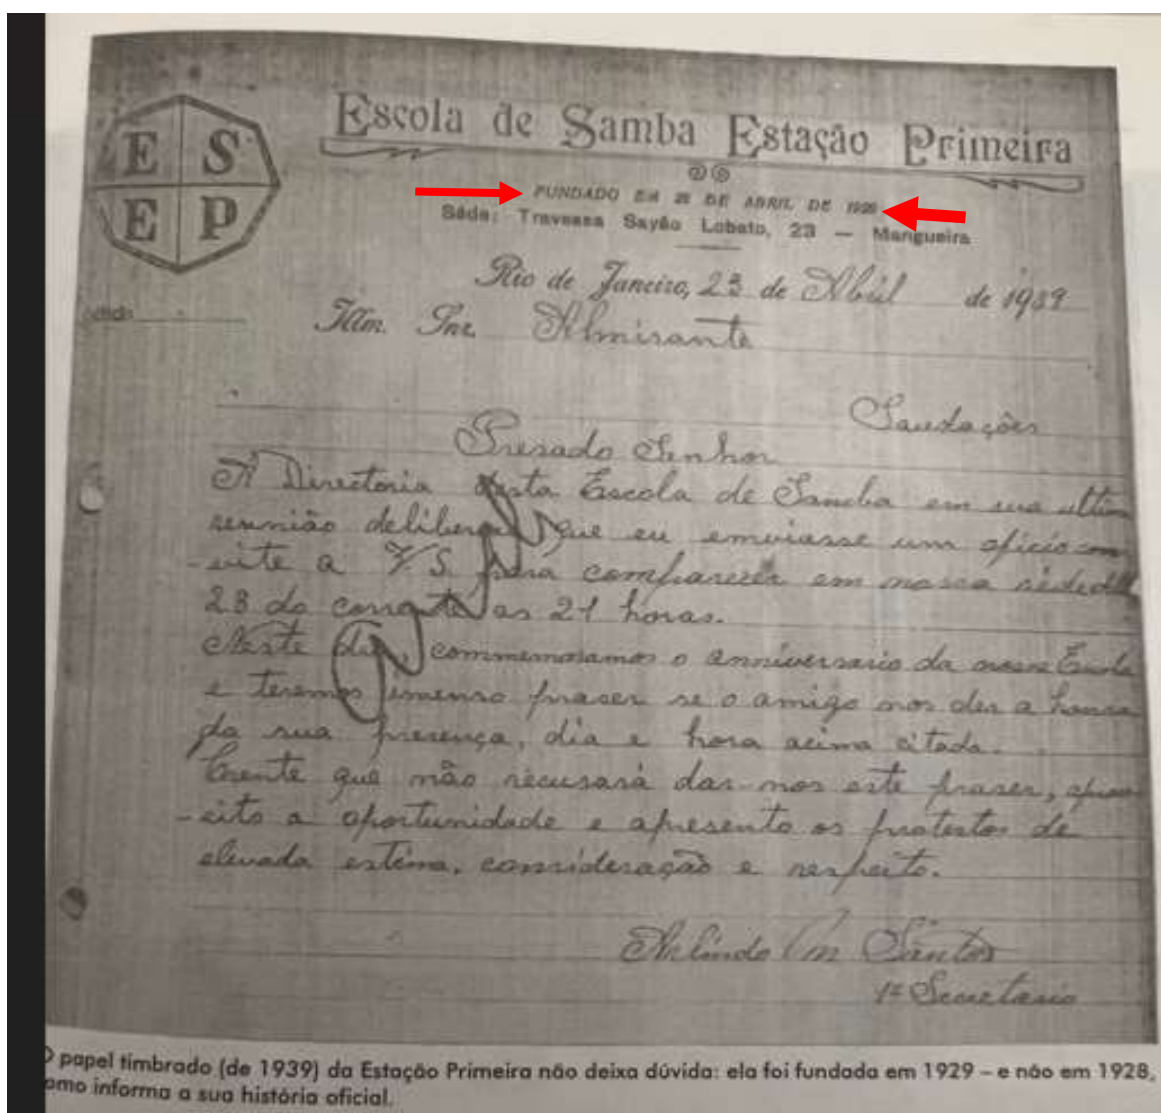 E S
E P
Escola de Samba Estação Primeira
FUNDADO EM 28 DE ABRIL DE 1929
Séde: Travessa Sayão Lobato, 23 — Mangueira
Rio de Janeiro, 23 de Abril de 1939
Illm. Snr. Almirante
Saudações
Presado Senhor
A Directoria desta Escola de Samba em sua ultima
reunião deliberou que eu enviasse um oficio con
-vite a V.S. para comparecer em nossa séde
28 do corrente as 21 horas.
Neste dia, commemoramos o anniversario da nossa Escola
e teremos imenso praser se o amigo nos der a honra
da sua presença, dia e hora acima citada.
Crente que não recusará dar-nos este praser, aprov
-eito a oportunidade e apresento os protestos de
elevada estima, consideração e respeito.
Arlindo dos Santos
1º Secretario
O papel timbrado (de 1939) da Estação Primeira não deixa dúvida: ela foi fundada em 1929 – e não em 1928,
como informa a sua história oficial.